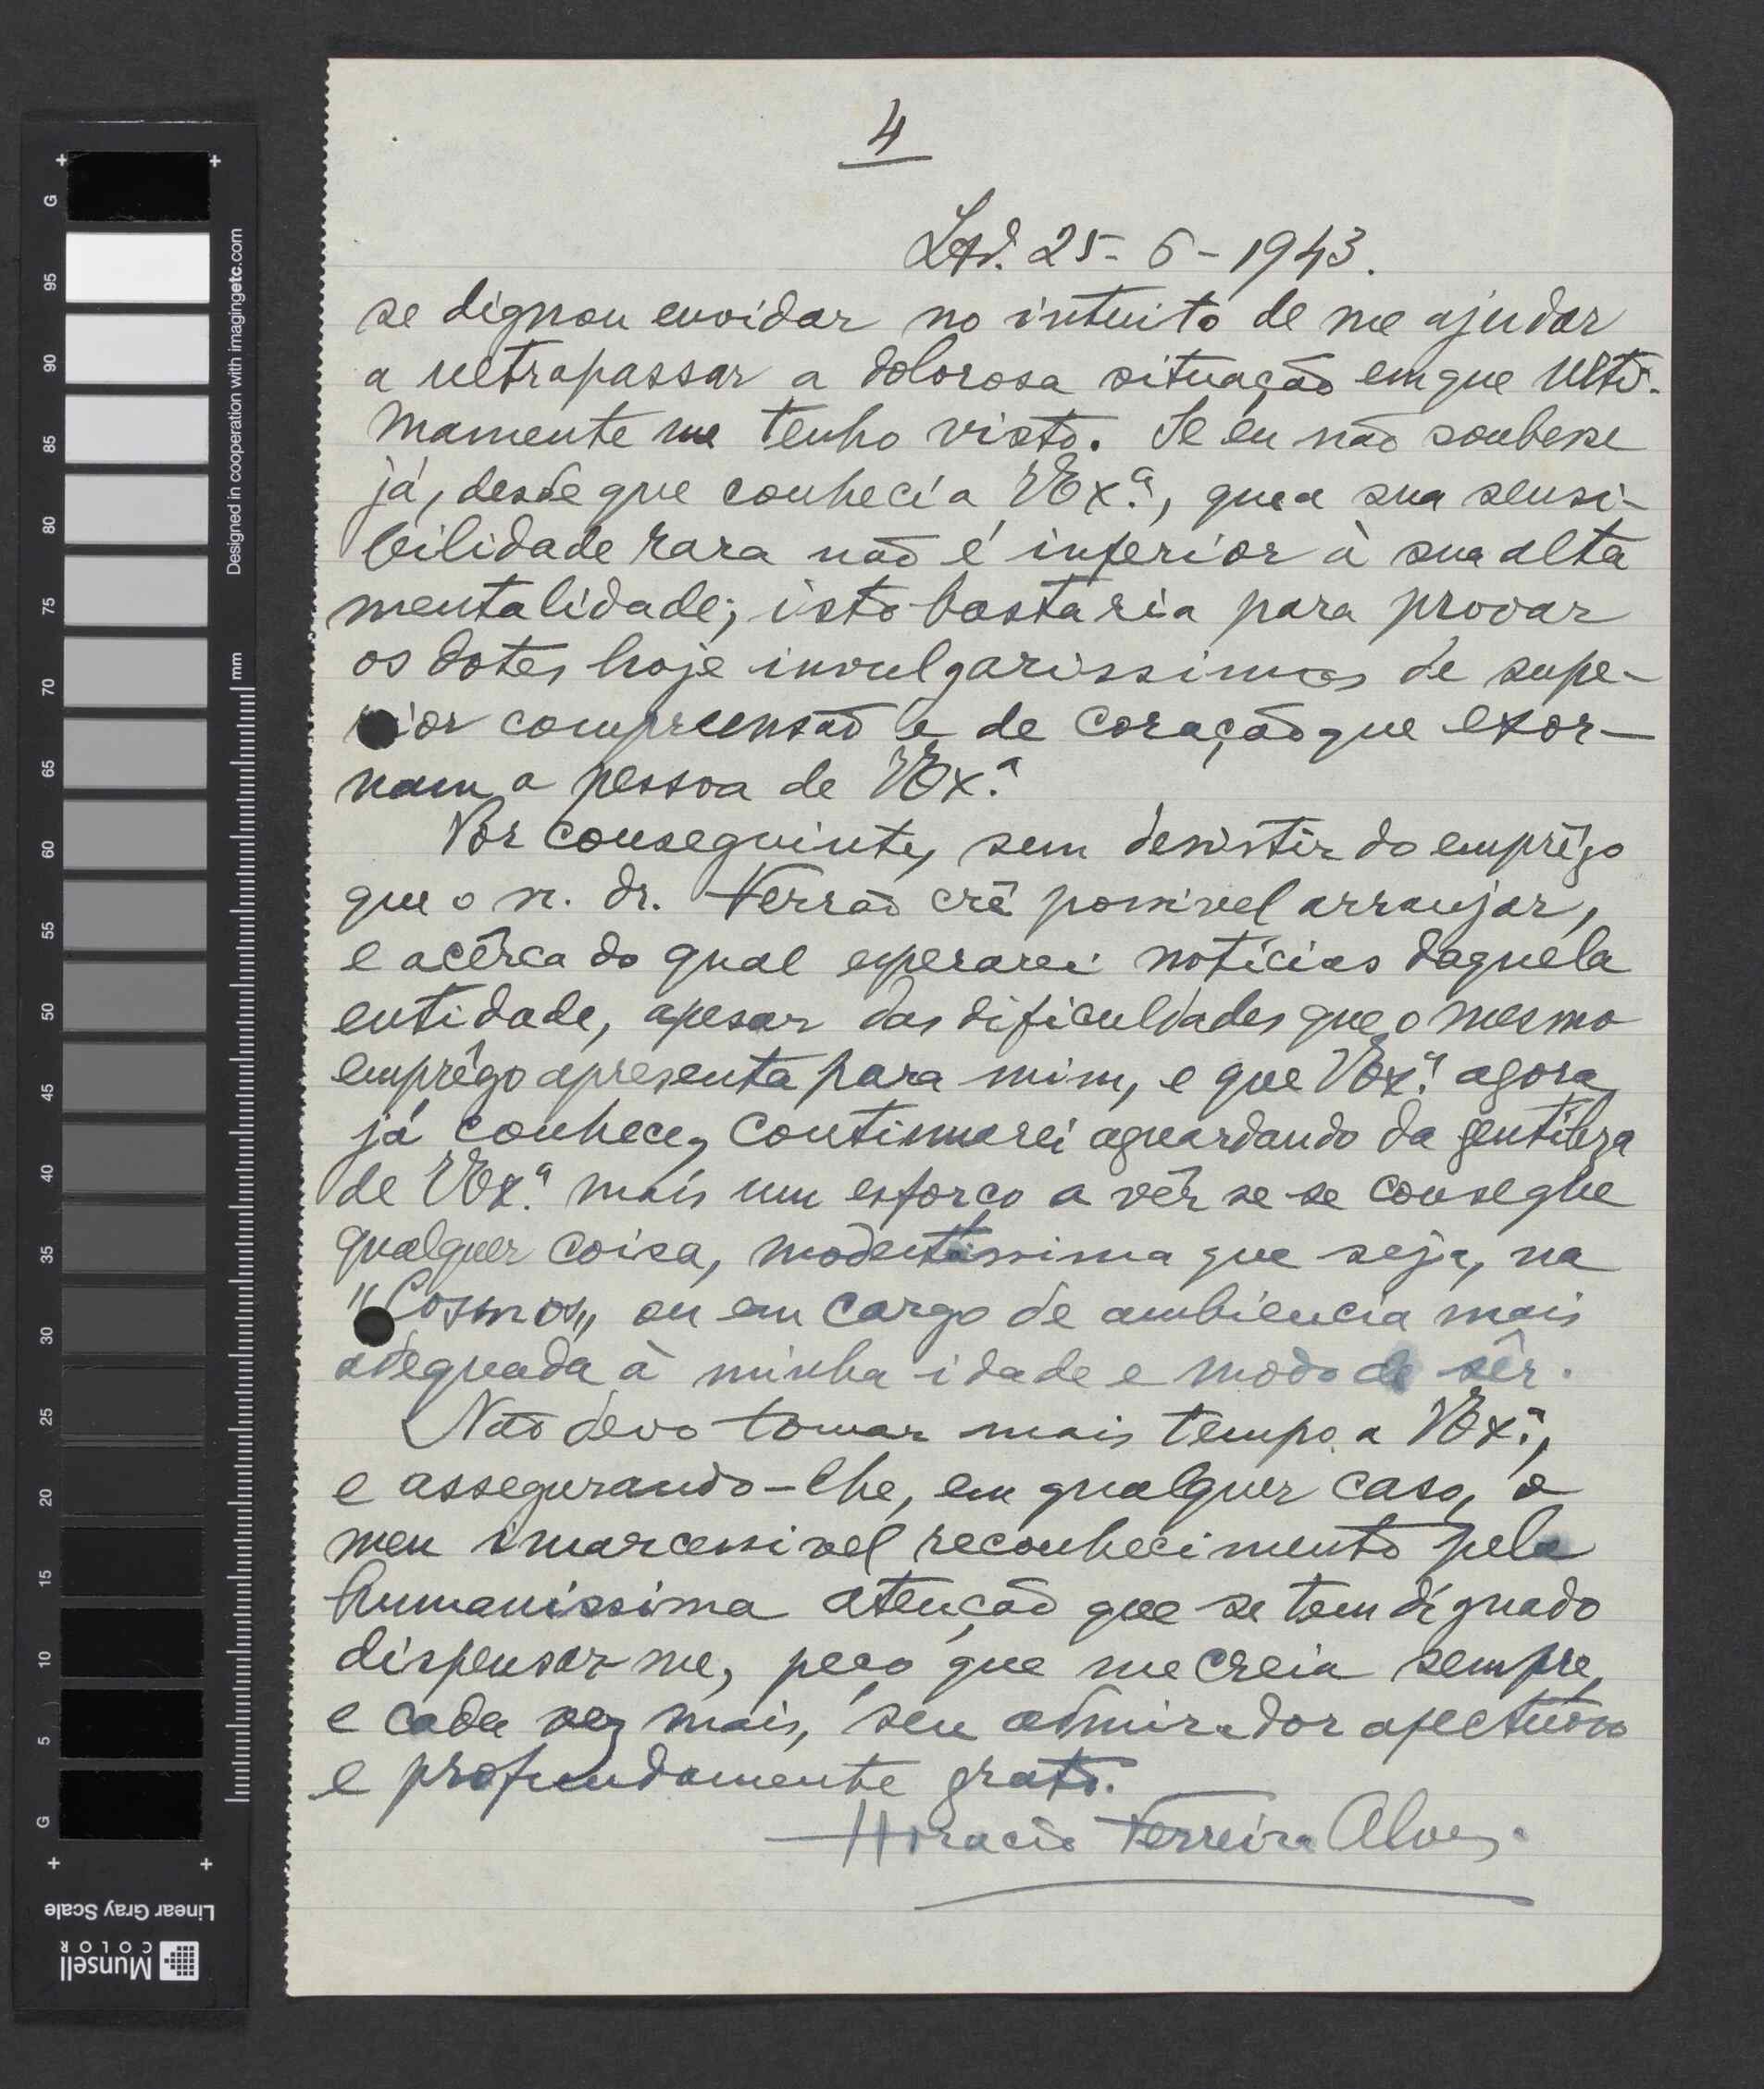 4
Lxª. 25-6-1943.
se dignou envidar no intuito de me ajudar
a ultrapassar a dolorosa situação em que ulti-
mamente me tenho visto. Se eu não soubesse
já, desde que conheci a VEx.ª, que a sua sensi-
bilidade rara não é inferior à sua alta
mentalidade; isto bastaria para provar
os dotes hoje invulgarissimos de supe-
rior compreensão e de coração que exor-
nam a pessoa de VEx.ª
Por conseguinte, sem desistir do emprêgo
que o sr. dr. Ferrão crê possivel arranjar,
e acêrca do qual esperarei notícias daquela
entidade, apesar das dificuldades que o mesmo
emprêgo apresenta para mim, e que VEx.ª agora
já conhece, continuarei aguardando da gentileza
de VEx.ª mais um esforço a vêr se se consegue
qualquer coisa, modestissima que seja, na
"Cosmos„ ou em cargo de ambiencia mais
adequada à minha idade e modo de sêr.
Não devo tomar mais tempo a VEx.ª,
e assegurando-lhe, em qualquer caso, o
meu imarcessivel reconhecimento pela
humanissima atenção que se tem dignado
dispensar-me, peço que me creia sempre,
e cada vez mais, seu admirador afectuoso
e profundamente grato.
Horacio Ferreira Alves.
G
95
90
85
80
75
70
65
60
55
50
45
40
35
30
25
20
15
10
5
G
mm
Designed in cooperation with imagingetc.com
Linear Gray Scale
Munsell
COLOR